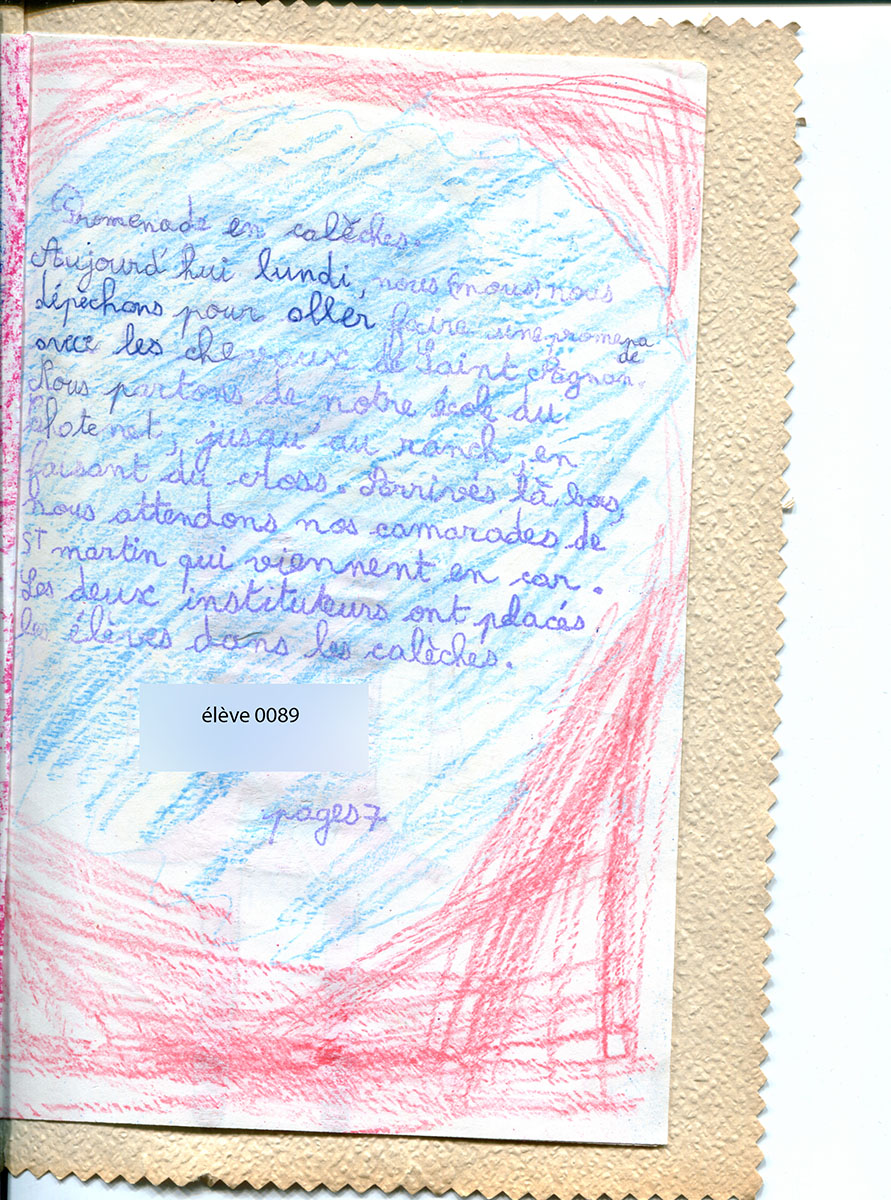 Promenade en calèches.
Aujourd'hui lundi, nous (nous) nous
dépechons pour aller faire une promena
de
avec les chevaux de Saint Agnan.
Nous partons de notre école du
plate net, jusqu'au ranch, en
faisant du cross. Arrivés là bas,
nous attendons nos camarades de
St martin qui viennent en car.
Les deux instituteurs ont placés
les élèves dans les calèches.
élève 0089
pages 7